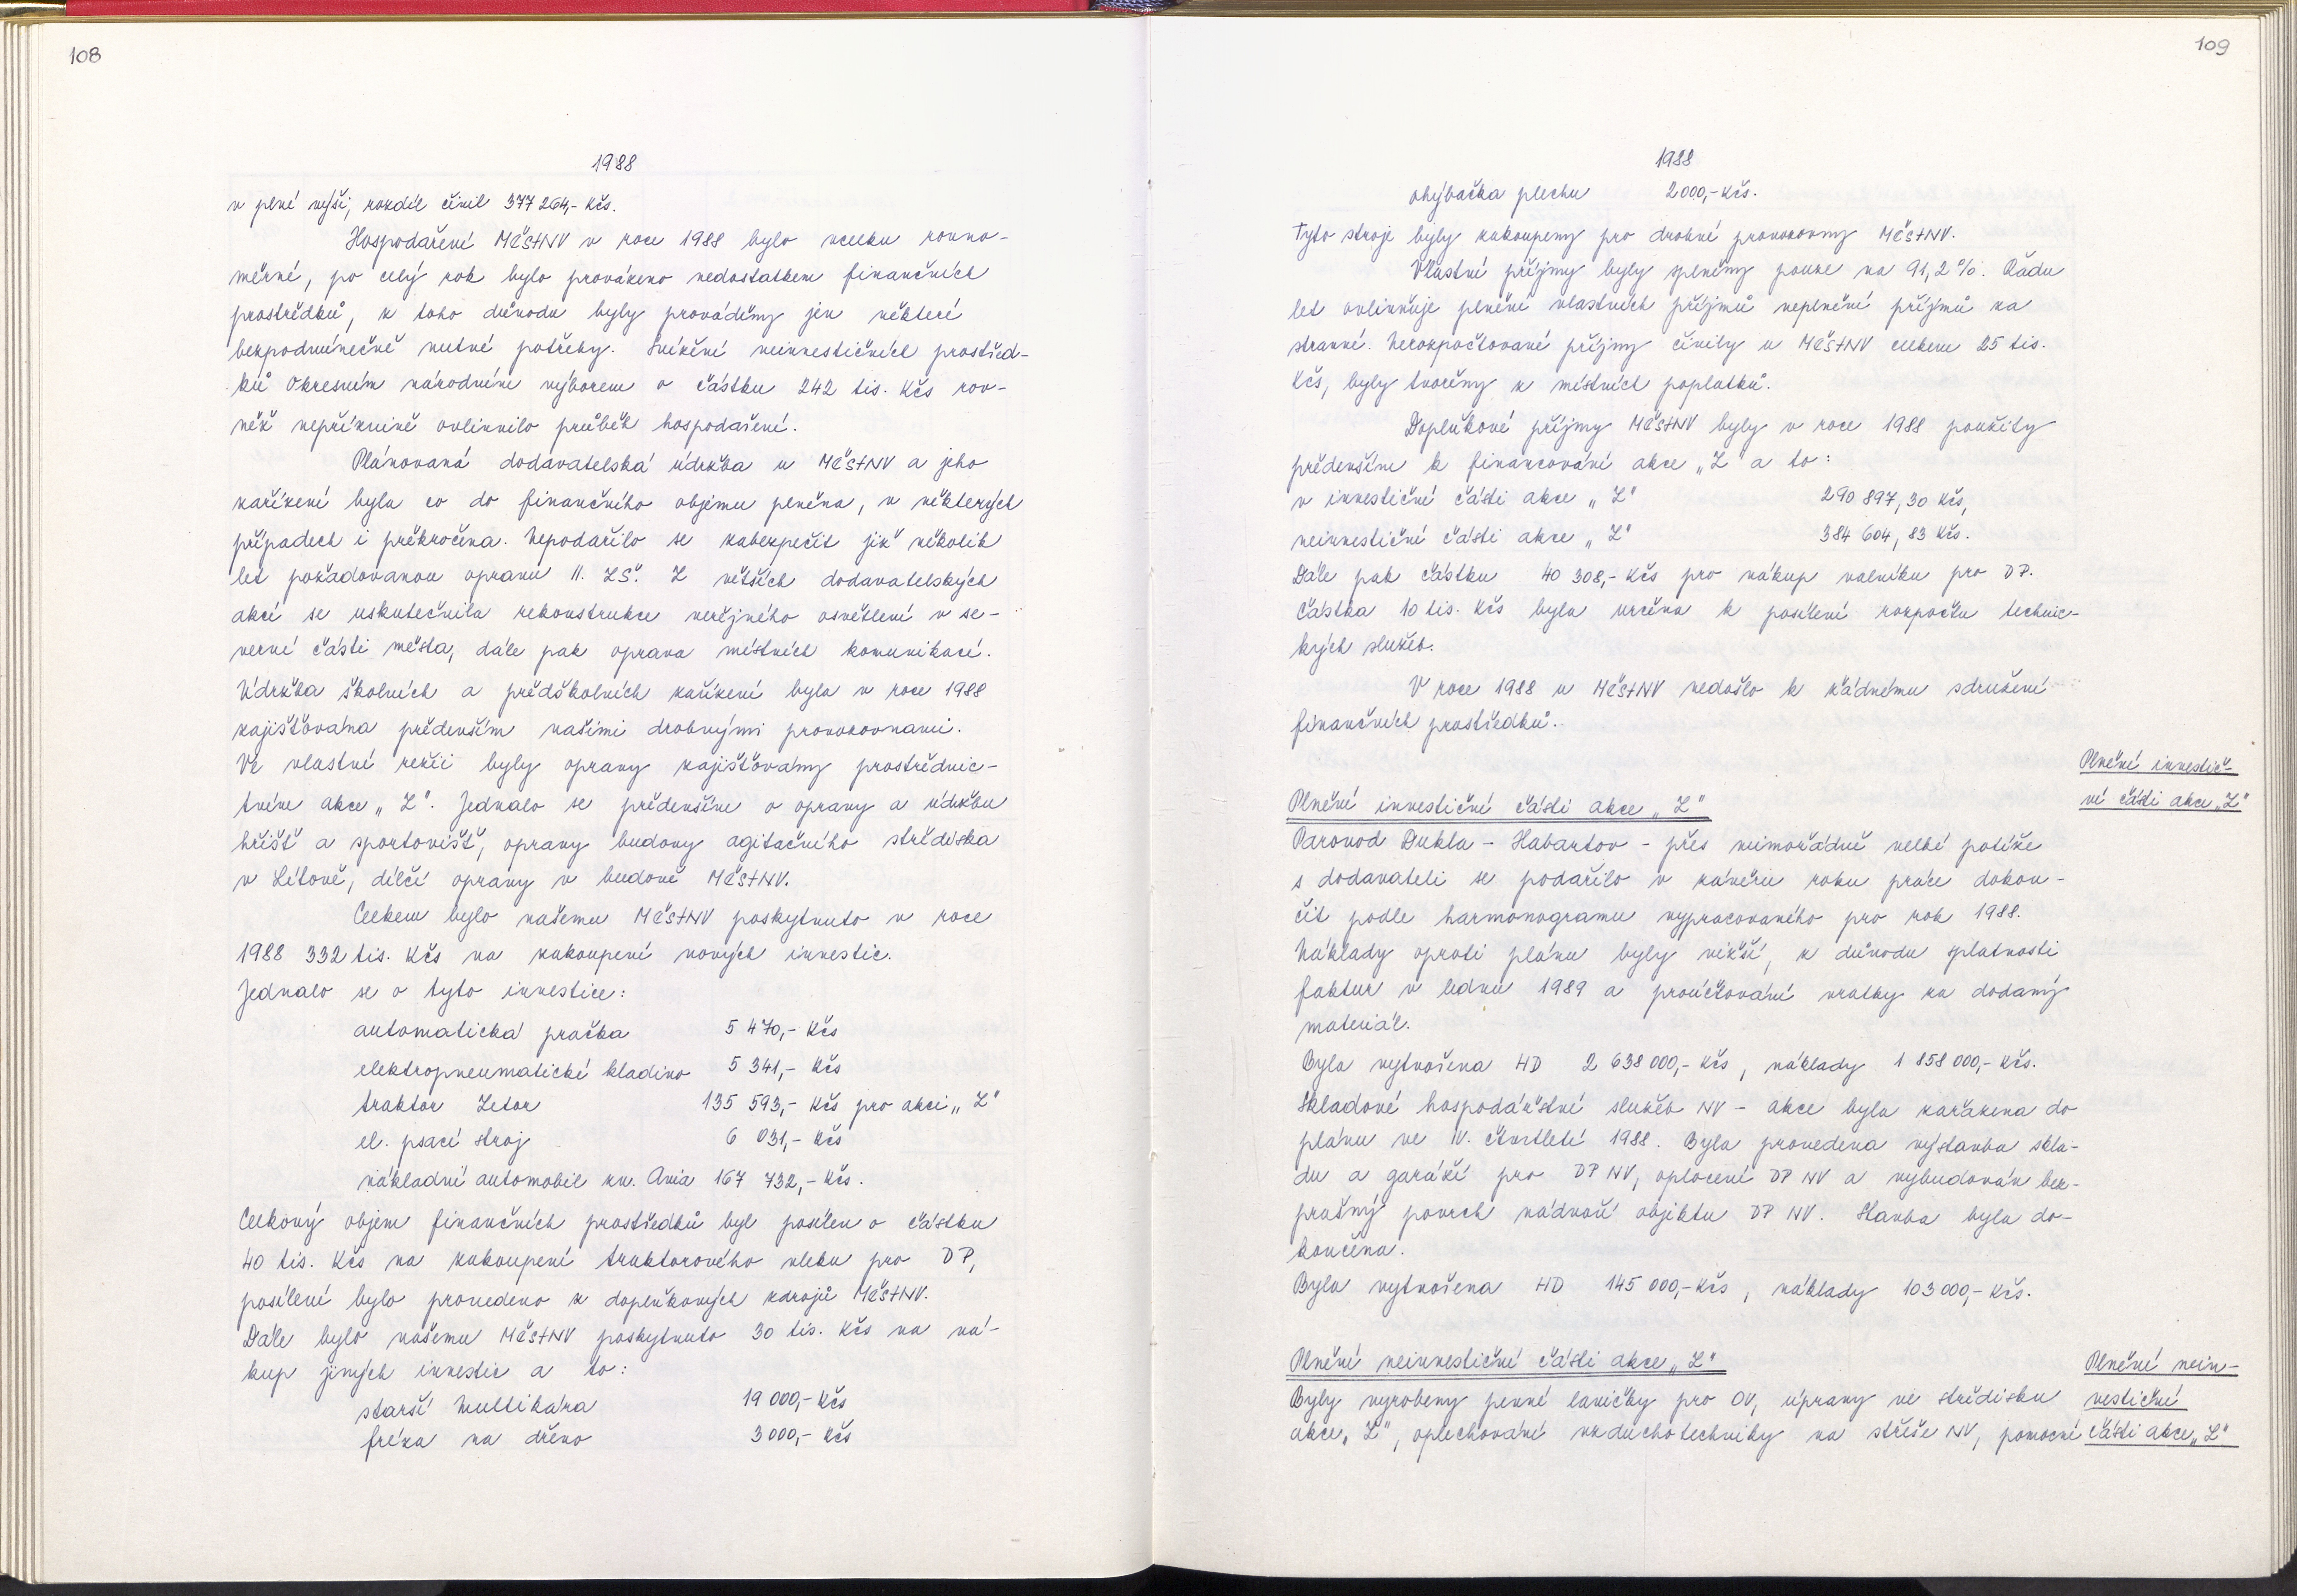 108
1988
v plné výši, rozdíl činil 377 264,- Kčs.
Hospodaření MěstNV v roce 1988 bylo vcelku rovno-
měrné, po celý rok bylo provázeno nedostatkem finančních
prostředků, z toho důvodu byly prováděny jen některé
bezpodmínečně nutné potřeby. Snížení neinvestičních prostřed-
ků Okresním národním výborem o částku 242 tis. Kčs rov-
něž nepříznivě ovlivnilo průběh hospodaření.
Plánovaná dodavatelská údržba u MěstNV a jeho
zařízení byla co do finančního objemu plněna, v některých
případech i překročena. Nepodařilo se zabezpečit již několik
let požadovanou opravu II. ZŠ. Z větších dodavatelských
akcí se uskutečnila rekonstrukce veřejného osvětlení v se-
verní části města, dále pak oprava místních komunikací.
Údržba školních a předškolních zařízení byla v roce 1988
zajišťována především našimi drobnými provozovnami.
Ve vlastní režii byly opravy zajišťovány prostřednic-
tvím akce „Z". Jednalo se především o opravy a údržbu
hřišť a sportovišť, opravy budovy agitačního střediska
v Lítově, dílčí opravy v budově MěstNV.
Celkem bylo našemu MěstNV poskytnuto v roce
1988 332 tis. Kčs na zakoupení nových investic.
Jednalo se o tyto investice:
automatická pračka 5 470,- Kčs
elektropneumatické kladivo 5 341,- Kčs
traktor Zetor 135 593,- Kčs pro akci „Z"
el. psací stroj 6 031,- Kčs
nákladní automobil zn. Avia 167 732,- Kčs.
Celkový objem finančních prostředků byl posílen o částku
40 tis. Kčs na zakoupení traktorového vleku pro DP,
posílení bylo provedeno z doplňkových zdrojů MěstNV.
Dále bylo našemu MěstNV poskytnuto 30 tis. Kčs na ná-
kup jiných investic a to:
starší Multikára 19 000,- Kčs
fréza na dřevo 3 000,- Kčs
109
1988
ohýbačka plechu 2 000,- Kčs.
Tyto stroje byly zakoupeny pro drobné provozovny MěstNV.
Vlastní příjmy byly splněny pouze na 91,2 %. Řadu
let ovlivňuje plnění vlastních příjmů neplnění příjmů za
stravné. Nerozpočtované příjmy činily u MěstNV celkem 25 tis.
Kčs, byly tvořeny z místních poplatků.
Doplňkové příjmy MěstNV byly v roce 1988 použity
především k financování akce „Z" a to:
v investiční části akce „Z" 290 897,30 Kčs,
neinvestiční části akce „Z" 384 604,83 Kčs.
Dále pak částku 40 308,- Kčs pro nákup valníku pro DP.
Částka 10 tis. Kčs byla určena k posílení rozpočtu technic-
kých služeb.
V roce 1988 u MěstNV nedošlo k žádnému sdružení
finančních prostředků.
Plnění investič-
ní části akce „Z"
Plnění investiční části akce „Z"
Parovod Dukla - Habartov - přes mimořádně velké potíže
s dodavateli se podařilo v závěru roku práce dokon-
čit podle harmonogramu vypracovaného pro rok 1988.
Náklady oproti plánu byly nižší, z důvodu splatnosti
faktur v lednu 1989 a proúčtování vratky za dodaný
materiál.
Byla vytvořena HD 2 638 000,- Kčs, náklady 1 858 000,- Kčs.
Skladové hospodářství služeb NV - akce byla zařazena do
plánu ve IV. čtvrtletí 1988. Byla provedena výstavba skla-
du a garáží pro DP NV, oplocení DP NV a vybudován bez-
prašný povrch nádvoří objektu DP NV. Stavba byla do-
končena.
Byla vytvořena HD 145 000,- Kčs, náklady 103 000,- Kčs.
Plnění neinvestiční části akce „Z"
Plnění nein-
vestiční
části akce „Z"
Byly vyrobeny pevné lavičky pro OV, úpravy ve středisku
akce „Z", oplechování vzduchotechniky na střeše NV, pomocné